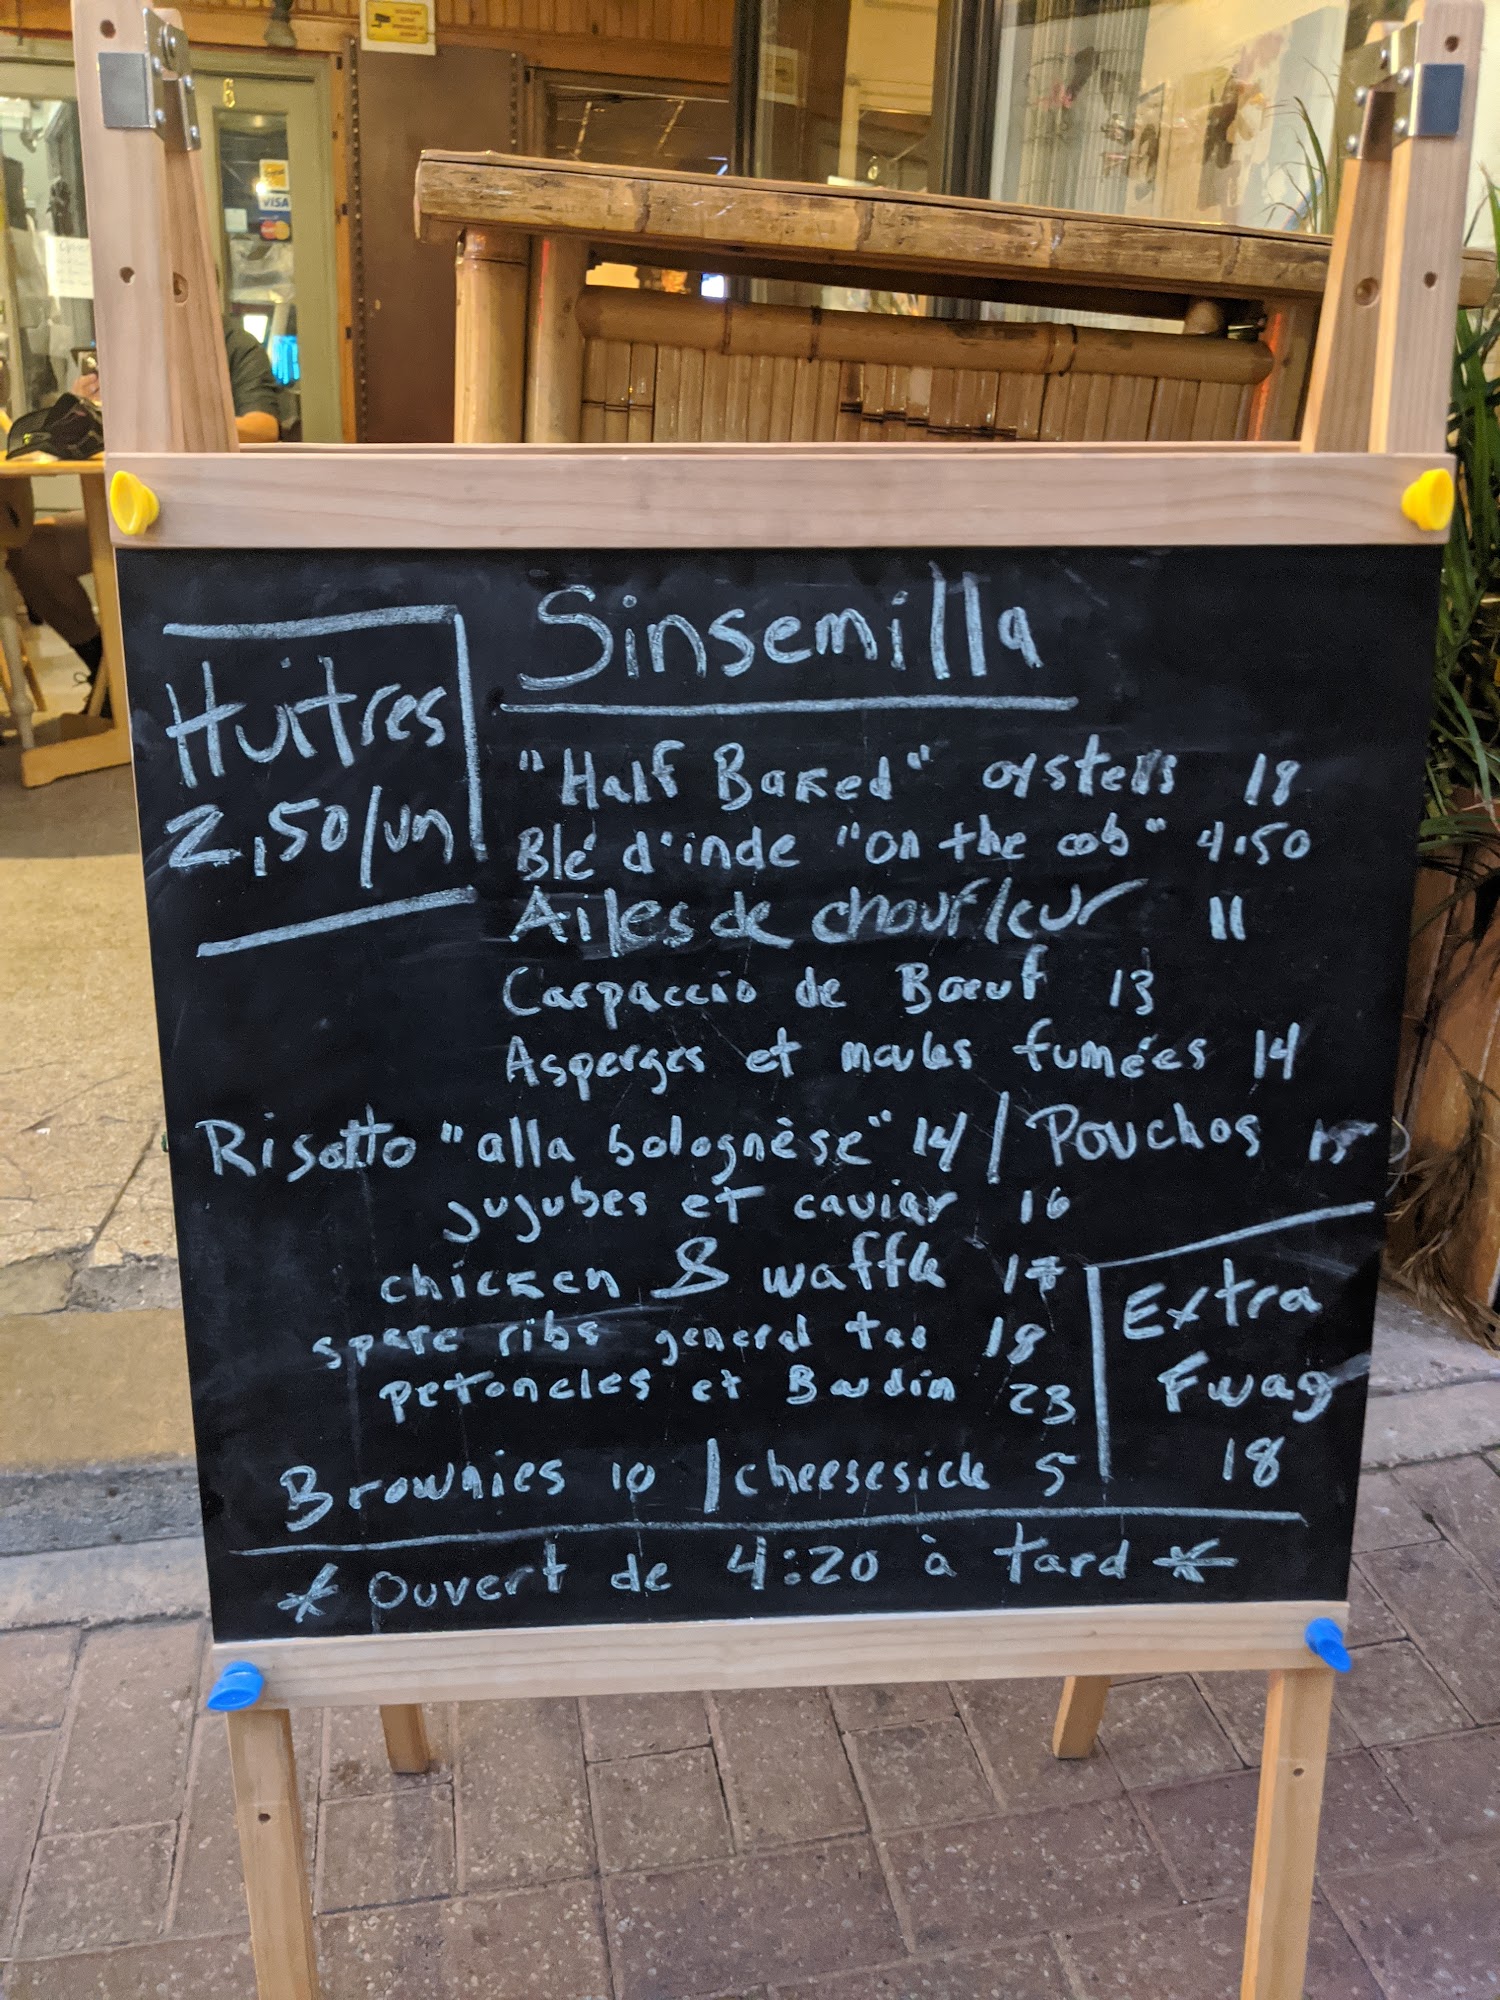 6
VISA
Sinsemilla
Huitres
2,50/un
"Half Baked" oysters 18
Blé d'inde "on the cob" 4.50
Ailes de choufleur 11
Carpaccio de Boeuf 13
Asperges et moules fumées 14
Risotto "alla bolognèse" 14 / Pouchos 15
jujubes et caviar 16
chicken & waffle 17
spare ribs general tao 18
petoncles et Boudin 23
Extra
Fwag
18
Brownies 10 | cheesesick 5
* Ouvert de 4:20 à tard *